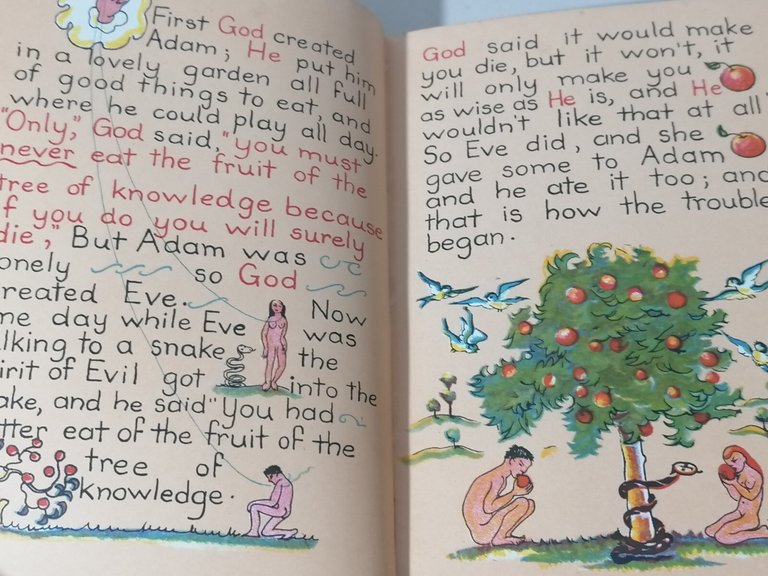 First God created
Adam; He put him
in a lovely garden all full
of good things to eat, and
where he could play all day.
"Only," God said, "you must
never eat the fruit of the
tree of knowledge because
f you do you will surely
die," But Adam was
onely so God
reated Eve. Now
me day while Eve was
lking to a snake the
irit of Evil got into the
ake, and he said "You had
tter eat of the fruit of the
tree of
knowledge.
God said it would make
you die, but it won't, it
will only make you
as wise as He is, and He
wouldn't like that at all"
So Eve did, and she
gave some to Adam
and he ate it too; and
that is how the trouble
began.